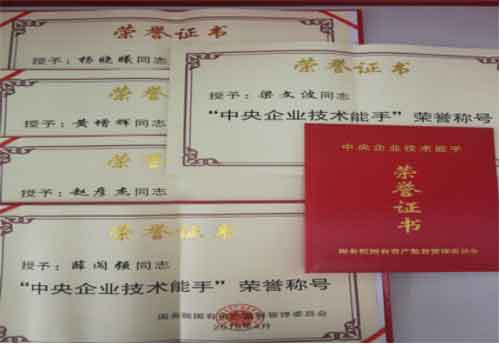 荣誉证书
授予：杨晓曦同志
荣誉
授予：黄增辉同志
荣誉
授予：赵彦杰同志
荣誉证书
授予：薛闯强同志
“中央企业技术能手”荣誉称号
国务院国有资产监督管理委员会
荣誉证书
授予：梁文波同志
“中央企业技术能手”荣誉称号
中央企业技术能手
荣誉证书
国务院国有资产监督管理委员会